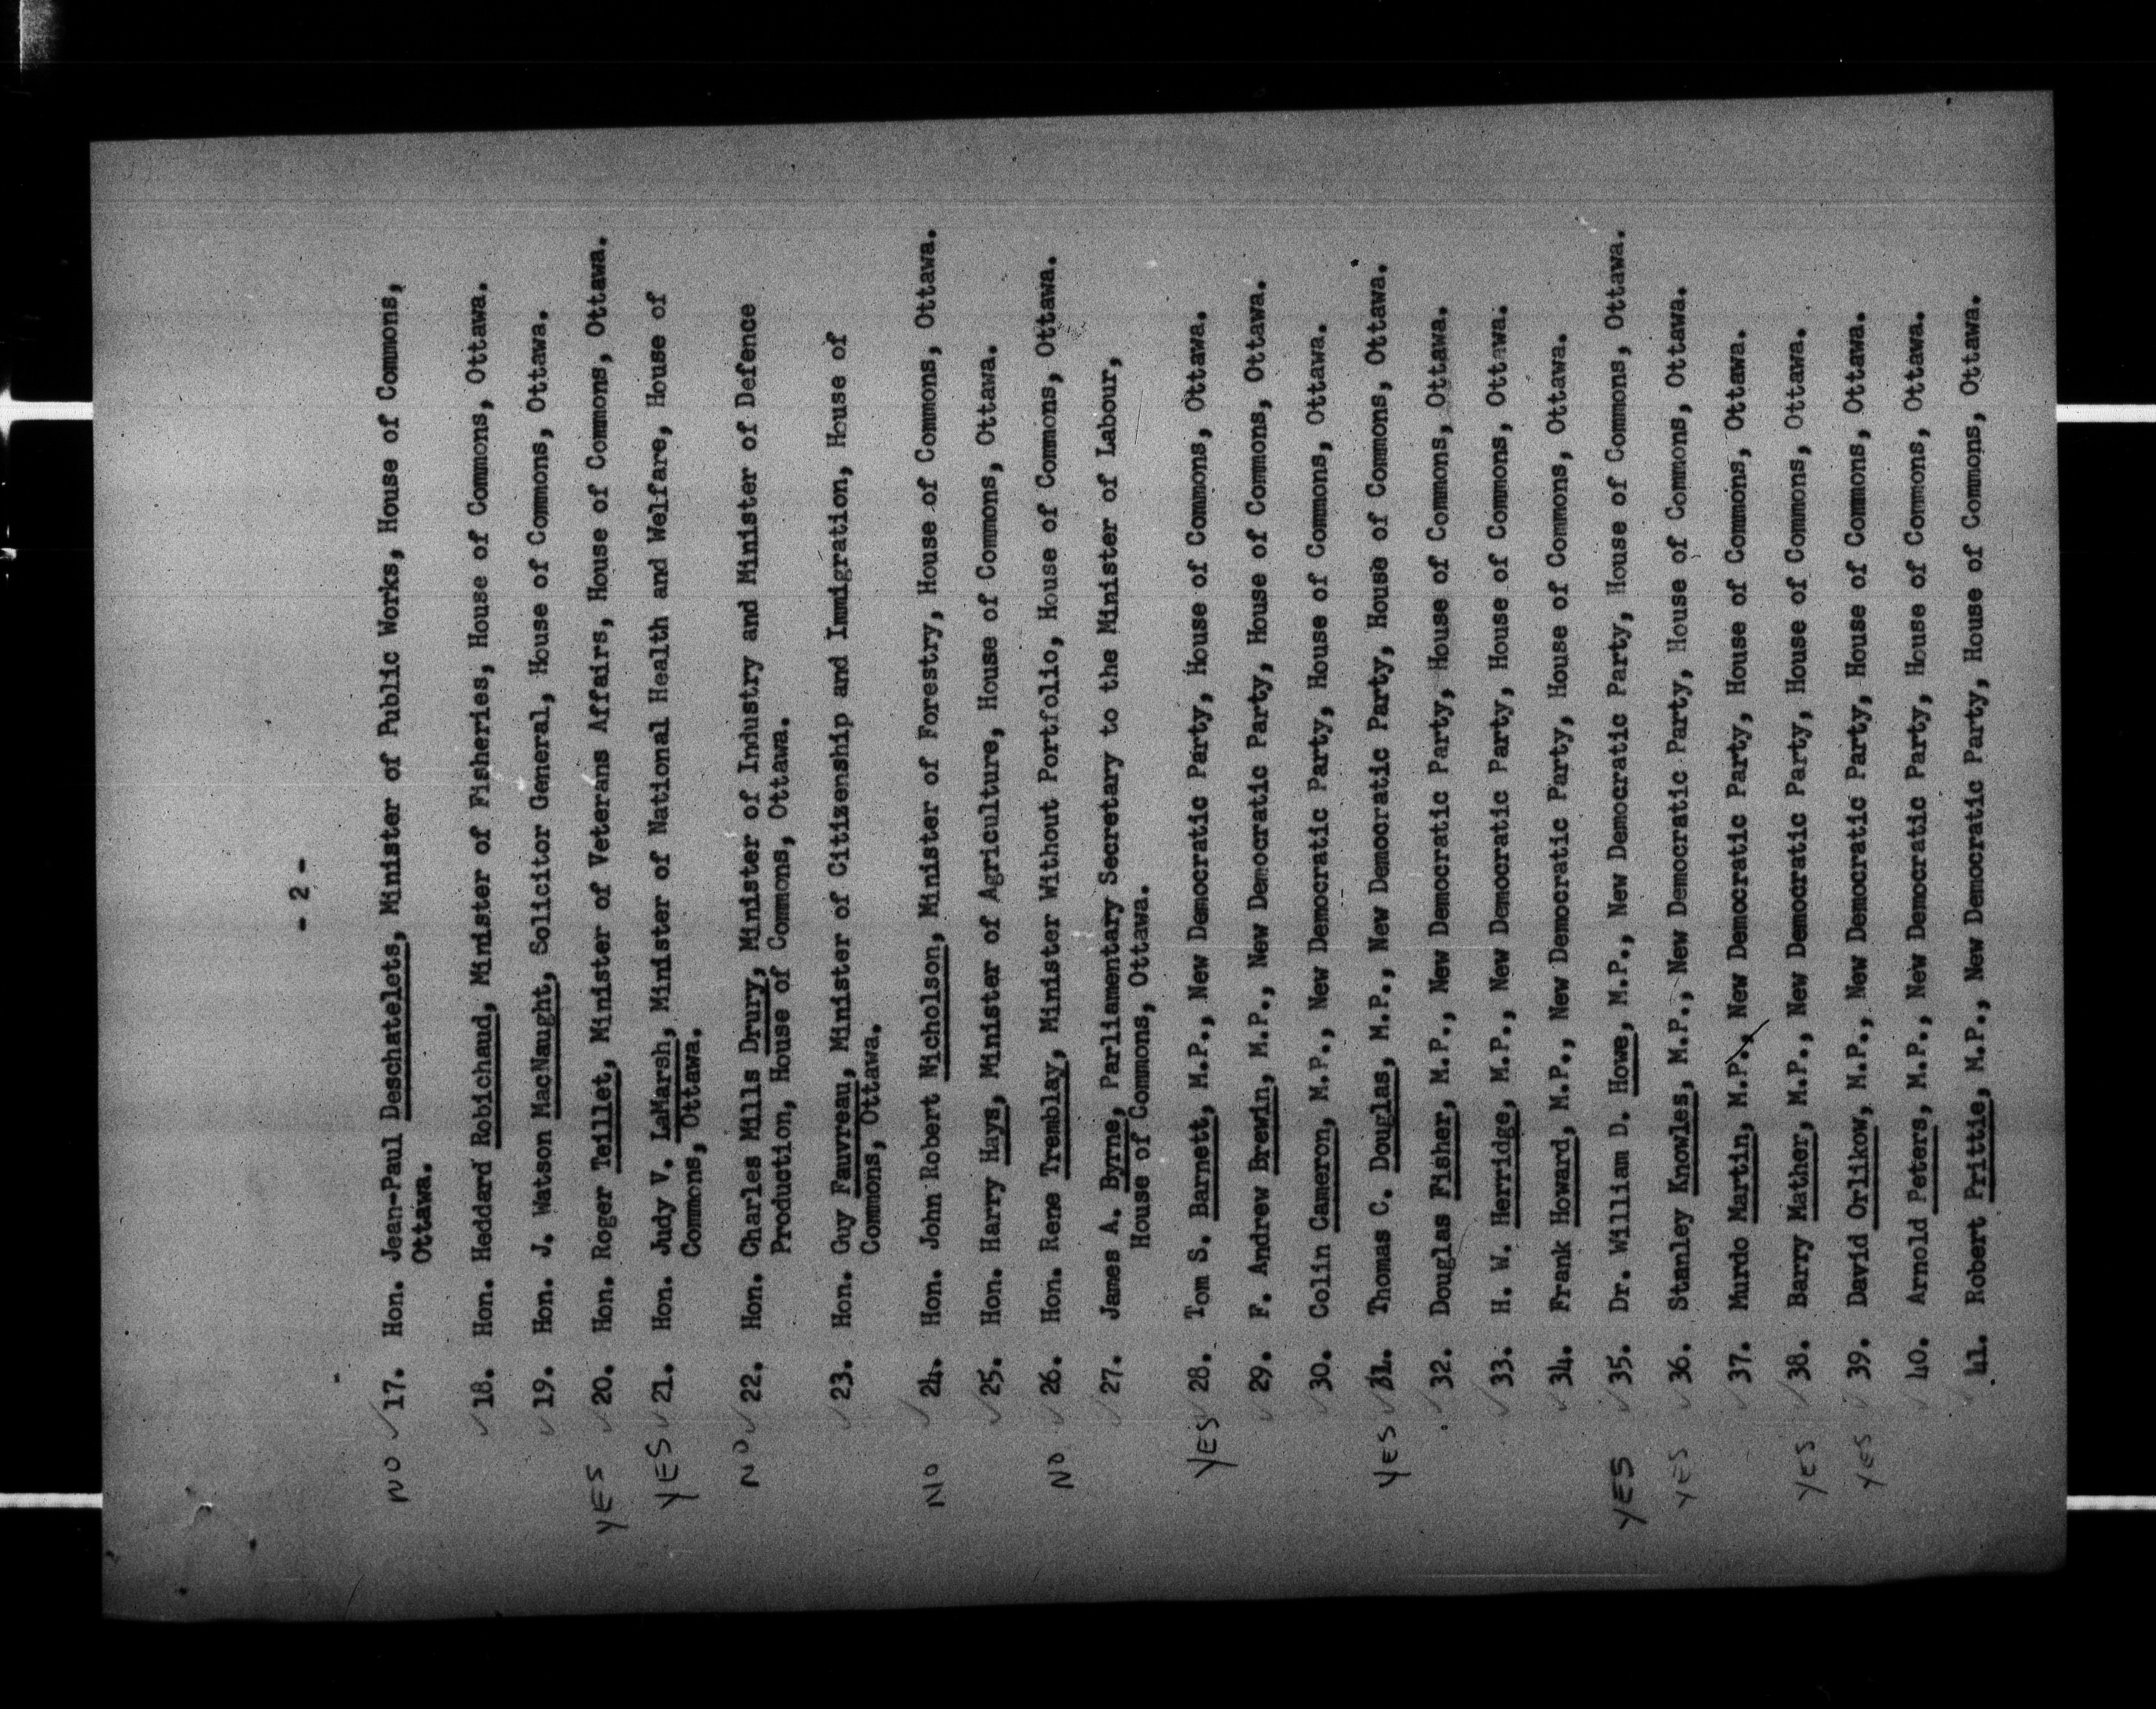 - 2 -
NO ✓ 17. Hon. Jean-Paul Deschatelets, Minister of Public Works, House of Commons,
Ottawa.
✓ 18. Hon. Heddard Robichaud, Minister of Fisheries, House of Commons, Ottawa.
✓ 19. Hon. J. Watson MacNaught, Solicitor General, House of Commons, Ottawa.
YES ✓ 20. Hon. Roger Teillet, Minister of Veterans Affairs, House of Commons, Ottawa.
YES ✓ 21. Hon. Judy V. LaMarsh, Minister of National Health and Welfare, House of
Commons, Ottawa.
NO ✓ 22. Hon. Charles Mills Drury, Minister of Industry and Minister of Defence
Production, House of Commons, Ottawa.
✓ 23. Hon. Guy Fauvreau, Minister of Citizenship and Immigration, House of
Commons, Ottawa.
NO ✓ 24. Hon. John Robert Nicholson, Minister of Forestry, House of Commons, Ottawa.
✓ 25. Hon. Harry Hays, Minister of Agriculture, House of Commons, Ottawa.
NO ✓ 26. Hon. Rene Tremblay, Minister Without Portfolio, House of Commons, Ottawa.
✓ 27. James A. Byrne, Parliamentary Secretary to the Minister of Labour,
House of Commons, Ottawa.
YES ✓ 28. Tom S. Barnett, M.P., New Democratic Party, House of Commons, Ottawa.
✓ 29. F. Andrew Brewin, M.P., New Democratic Party, House of Commons, Ottawa.
✓ 30. Colin Cameron, M.P., New Democratic Party, House of Commons, Ottawa.
YES ✓ 31. Thomas C. Douglas, M.P., New Democratic Party, House of Commons, Ottawa.
✓ 32. Douglas Fisher, M.P., New Democratic Party, House of Commons, Ottawa.
✓ 33. H. W. Herridge, M.P., New Democratic Party, House of Commons, Ottawa.
✓ 34. Frank Howard, M.P., New Democratic Party, House of Commons, Ottawa.
YES ✓ 35. Dr. William D. Howe, M.P., New Democratic Party, House of Commons, Ottawa.
YES ✓ 36. Stanley Knowles, M.P., New Democratic Party, House of Commons, Ottawa.
✓ 37. Murdo Martin, M.P., New Democratic Party, House of Commons, Ottawa.
YES ✓ 38. Barry Mather, M.P., New Democratic Party, House of Commons, Ottawa.
YES ✓ 39. David Orlikow, M.P., New Democratic Party, House of Commons, Ottawa.
✓ 40. Arnold Peters, M.P., New Democratic Party, House of Commons, Ottawa.
✓ 41. Robert Prittie, M.P., New Democratic Party, House of Commons, Ottawa.